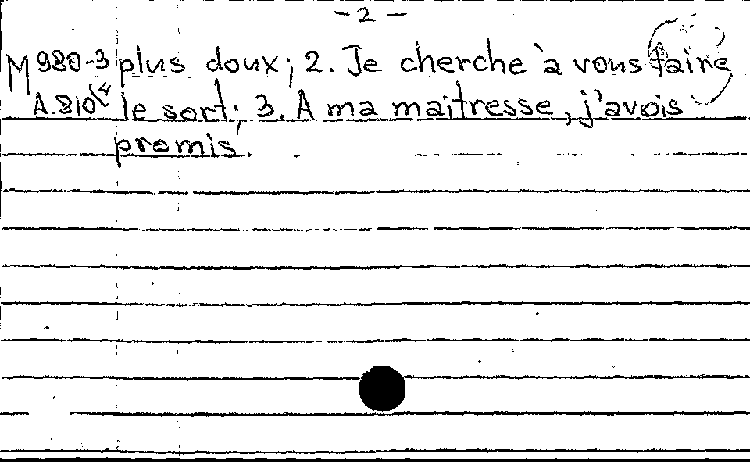 - 2 -
M 980-3 plus doux; 2. Je cherche à vous faire
A.810 le sort; 3. A ma maitresse, j'avois
promis.